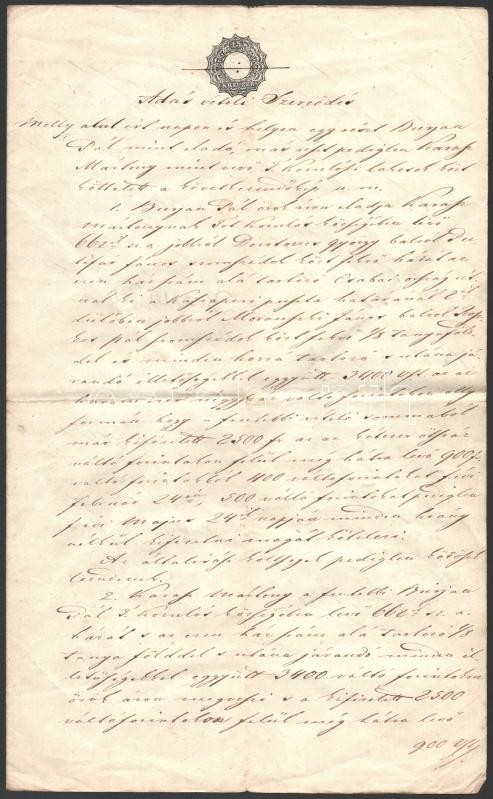 15
KREUZER
Adás vételi Szerződés
Melly alul irt napon és helyen egy részt Burján
Pál mint eladó, más részt pediglen Karap
Mártony mint vevő T. Komlósi lakosok közt
köttetett a következendőkép u. m.
1. Burján Pál örök áron eladja Karap
Mártonynak Tót Komlós községében lévő
662 sz. a. jobbról György balról
János szomszédok közt fekvő házát az
ezen ház szám alá tartozó Csabai
és a Kaszaperi puszta határának
dülőben jobbról János balról
Pál szomszédok közt fekvő 1/8 tanyaföld
del és minden hozzá tartozó s utána já
randó illetőségekkel együtt 3400 vft az az
három ezer négyszáz váltó forintokon olly
formán hogy a fentebbi vételi summából
már kifizetett 2500 fr az az kétezer ötszáz
váltó forintokon felül még hátra levő 900 fr
váltó forintokból 400 váltóforintokat f. évi
február 24én, 500 váltó forintokat pediglen
f. évi Majus 24k napján minden hiány
nélkül kifizetni magát kötelezi.
Az általírási költségek pediglen közössek
lesznek.
2. Karap Mártony a fentebbi Burján
Pál T. Komlós községében levő 662 sz. a.
házát s az ezen ház szám alá tartozó 1/8
tanya földdel s utána járandó minden il
letőségekkel együtt 3400 váltó forintokon
örök áron megveszi s a kifizetett 2500
váltóforintokon felül még hátra levő
900 vft